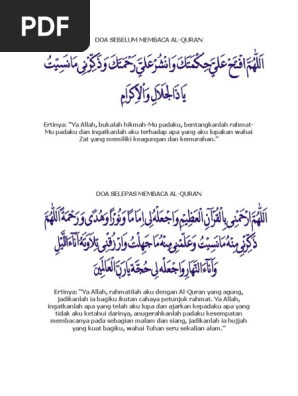 PDF
DOA SEBELUM MEMBACA AL-QURAN
اَللّٰهُمَّ افْتَحْ عَلَيَّ حِكْمَتَكَ وَانْشُرْ عَلَيَّ رَحْمَتَكَ وَذَكِّرْنِي مَانَسِيْتُ
يَاذَاالْجَلَالِ وَالْإِكْرَامِ
Ertinya: "Ya Allah, bukalah hikmah-Mu padaku, bentangkanlah rahmat-
Mu padaku dan ingatkanlah aku terhadap apa yang aku lupakan wahai
Zat yang memiliki keagungan dan kemurahan."
DOA SELEPAS MEMBACA AL-QURAN
اَللّٰهُمَّ ارْحَمْنِي بِالْقُرْآنِ الْعَظِيْمِ وَاجْعَلْهُ لِي اِمَامًا وَنُوْرًا وَهُدًى وَرَحْمَةً اَللّٰهُمَّ
ذَكِّرْنِي مِنْهُ مَانَسِيْتُ وَعَلِّمْنِي مِنْهُ مَاجَهِلْتُ وَارْزُقْنِي تِلَاوَتَهُ آنَاءَ اللَّيْلِ
وَآنَاءَ النَّهَارِ وَاجْعَلْهُ لِي حُجَّةً يَارَبَّ الْعَالَمِيْنَ
Ertinya: "Ya Allah, rahmatilah aku dengan Al-Quran yang agung,
jadikanlah ia bagiku ikutan cahaya petunjuk rahmat. Ya Allah,
ingatkanlah apa yang telah aku lupa dan ajarkan kepadaku apa yang
tidak aku ketahui darinya, anugerahkanlah padaku kesempatan
membacanya pada sebagian malam dan siang, jadikanlah ia hujjah
yang kuat bagiku, wahai Tuhan seru sekalian alam."